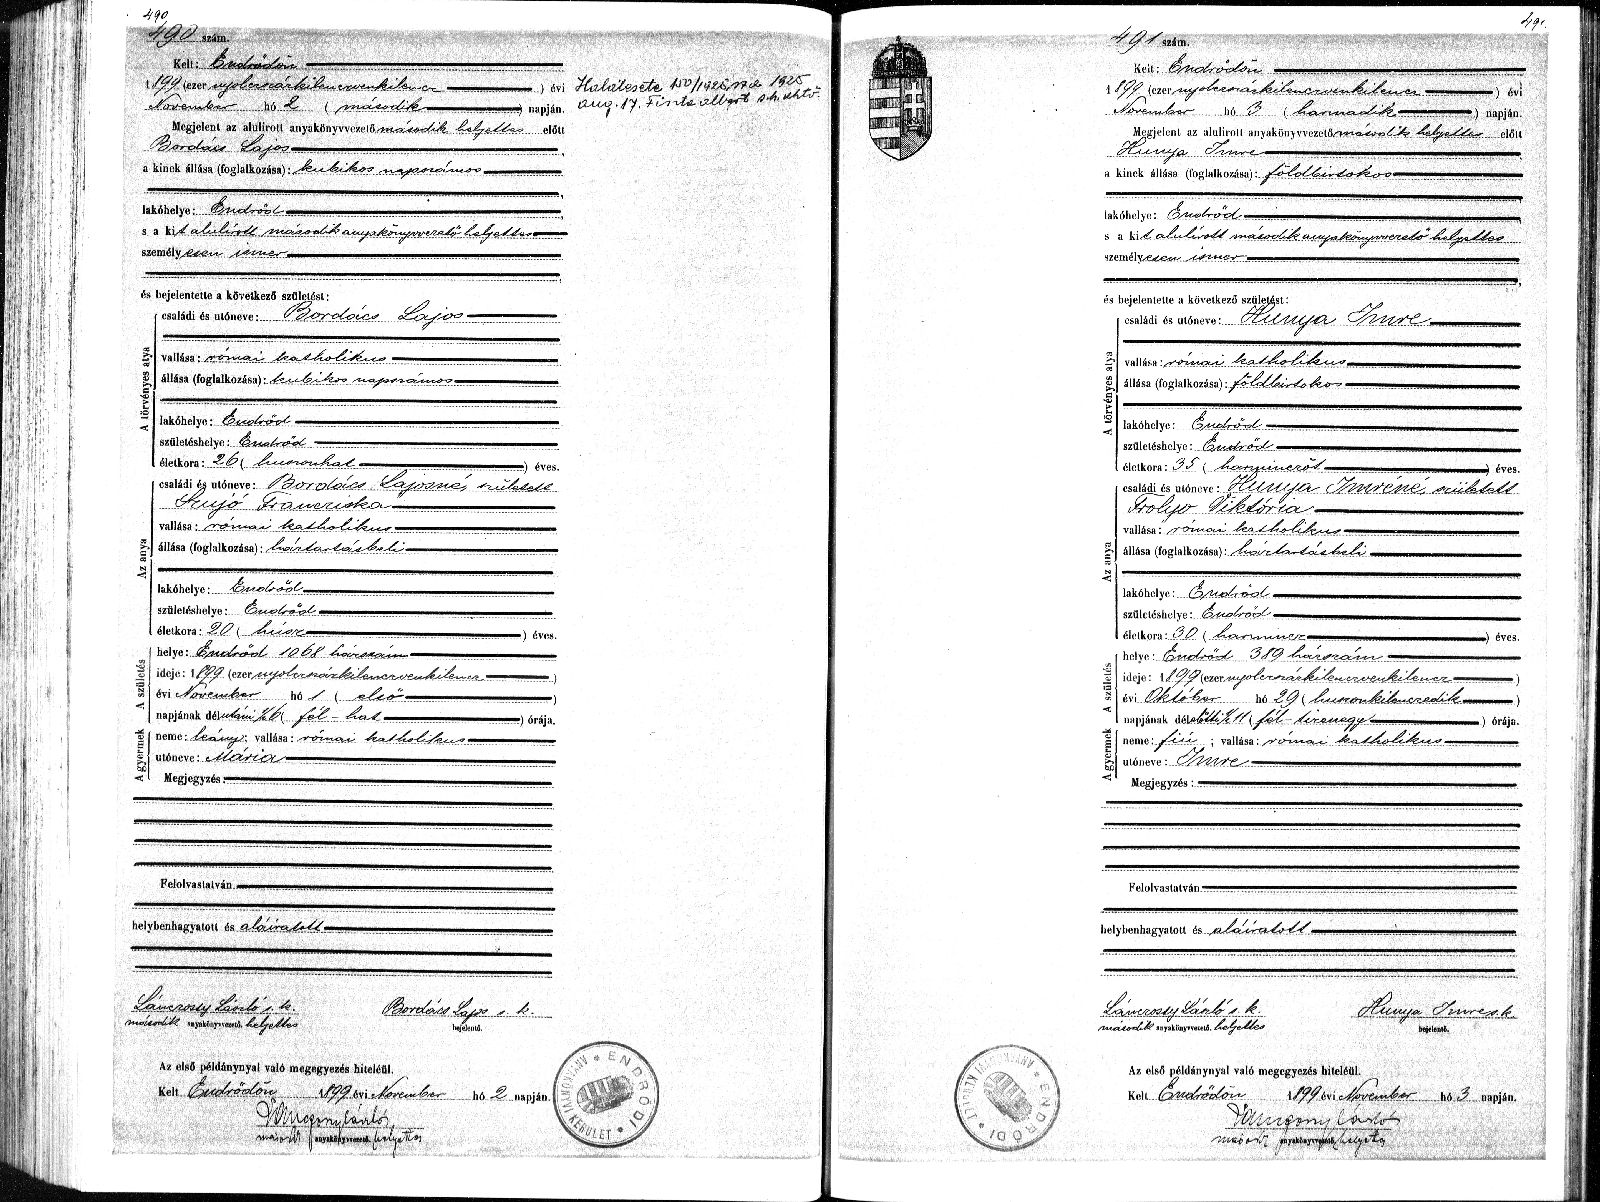 490
490 szám.
Kelt: Endrődön
1899 (ezer nyolcszázkilencvenkilencz ) évi
November hó 2 ( második ) napján.
Megjelent az alulirott anyakönyvvezető második helyettes előtt
Bordács Lajos ,
a kinek állása (foglalkozása): kubikos napszámos
lakóhelye: Endrőd ,
s a kit alulírott második anyakönyvvezető helyettes
személyesen ismer
és bejelentette a következő születést:
A törvényes atya
családi és utóneve: Bordács Lajos
vallása: római katholikus
állása (foglalkozása): kubikos napszámos
lakóhelye: Endrőd
születéshelye: Endrőd
életkora: 26 ( huszonhat ) éves.
Az anya
családi és utóneve: Bordács Lajosné, született
Szujó Francziska
vallása: római katholikus
állása (foglalkozása): háztartásbeli
lakóhelye: Endrőd
születéshelye: Endrőd
életkora: 20 ( húsz ) éves.
A születés
helye: Endrőd 1068 házszám
ideje: 1899 (ezer nyolcszázkilencvenkilencz )
évi November hó 1 ( első )
napjának délutáni ½6 ( fél-hat ) órája.
A gyermek
neme: leány; vallása: római katholikus
utóneve: Mária
Megjegyzés:
Felolvastatván,
helybenhagyatott és aláiratott
Lánczossy László s. k. Bordács Lajos s. k.
második anyakönyvvezető helyettes bejelentő.
Az első példánynyal való megegyezés hiteléül.
Kelt Endrődön 1899 évi November hó 2 napján.
anyakönyvvezető helyettes
ENDRŐDI * ANYAKÖNYVI KERÜLET *
Halálesete 150/1925 1925
aug. 17. albert s.k.
491
491 szám.
Kelt: Endrődön
1899 (ezer nyolcszázkilencvenkilencz ) évi
November hó 3 ( harmadik ) napján.
Megjelent az alulirott anyakönyvvezető második helyettes előtt
Hunya Imre
a kinek állása (foglalkozása): földbirtokos
lakóhelye: Endrőd ,
s a kit alulírott második anyakönyvvezető helyettes
személyesen ismer
és bejelentette a következő születést:
A törvényes atya
családi és utóneve: Hunya Imre
vallása: római katholikus
állása (foglalkozása): földbirtokos
lakóhelye: Endrőd
születéshelye: Endrőd
életkora: 35 ( harminczöt ) éves.
Az anya
családi és utóneve: Hunya Imréné, született
Frolyo Viktória
vallása: római katholikus
állása (foglalkozása): háztartásbeli
lakóhelye: Endrőd
születéshelye: Endrőd
életkora: 30 ( harmincz ) éves.
A születés
helye: Endrőd 389 házszám
ideje: 1899 (ezer nyolcszázkilencvenkilencz )
évi Október hó 29 ( huszonkilenczedik )
napjának délelőtti ½11 ( fél-tizenegy ) órája.
A gyermek
neme: fiú ; vallása: római katholikus
utóneve: Imre
Megjegyzés:
Felolvastatván,
helybenhagyatott és aláiratott
Lánczossy László s. k. Hunya Imre s. k.
második anyakönyvvezető, helyettes bejelentő.
Az első példánynyal való megegyezés hiteléül.
Kelt Endrődön 1899 évi November hó 3 napján.
anyakönyvvezető helyettes
ENDRŐDI * ANYAKÖNYVI KERÜLET *